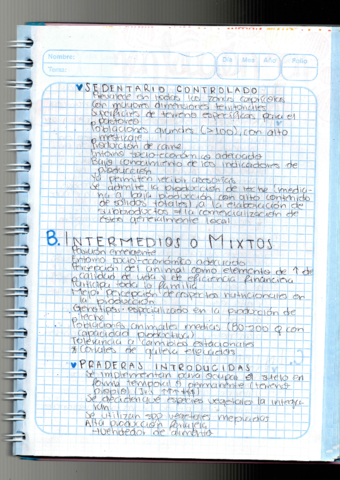 Nombre:
Tema:
Día Mes Año Folio
♥ SEDENTARIO CONTROLADO
en todas las zonas caprícolas
con mayores dimensiones territoriales
Superficies de terreno específicas para el
pastoreo
Poblaciones grandes (>100), con alto
mestizaje
Producción de carne
Entorno socio-económico adecuado
Bajo conocimiento de los indicadores de
producción
Ya permiten recibir asesorías
Se admite la producción de leche (media-
na a baja producción con alto contenido
de sólidos totales) a la elaboración de
subproductos la comercialización de
es generalmente local
B. INTERMEDIOS O MIXTOS
Posición emergente
Entorno socio-económico adecuado
Percepción del animal como elemento de
calidad de vida y de eficiencia financiera
Participa toda la familia
Mejor percepción de nutricionales en
la producción
Genotipos especializado en la producción de
leche
Poblaciones animales medias (80-200 con
capacidad productiva)
Tolerancia a cambios estacionales
de galera
♥ PRADERAS INTRODUCIDAS
Se implementan para ocupar el suelo en
forma temporal o permanente (terreno
propio)
Se decide que especies vegetales la integra-
rán
Se utilizan spp vegetales mejoradas
Alta producción forrajera
de alimento